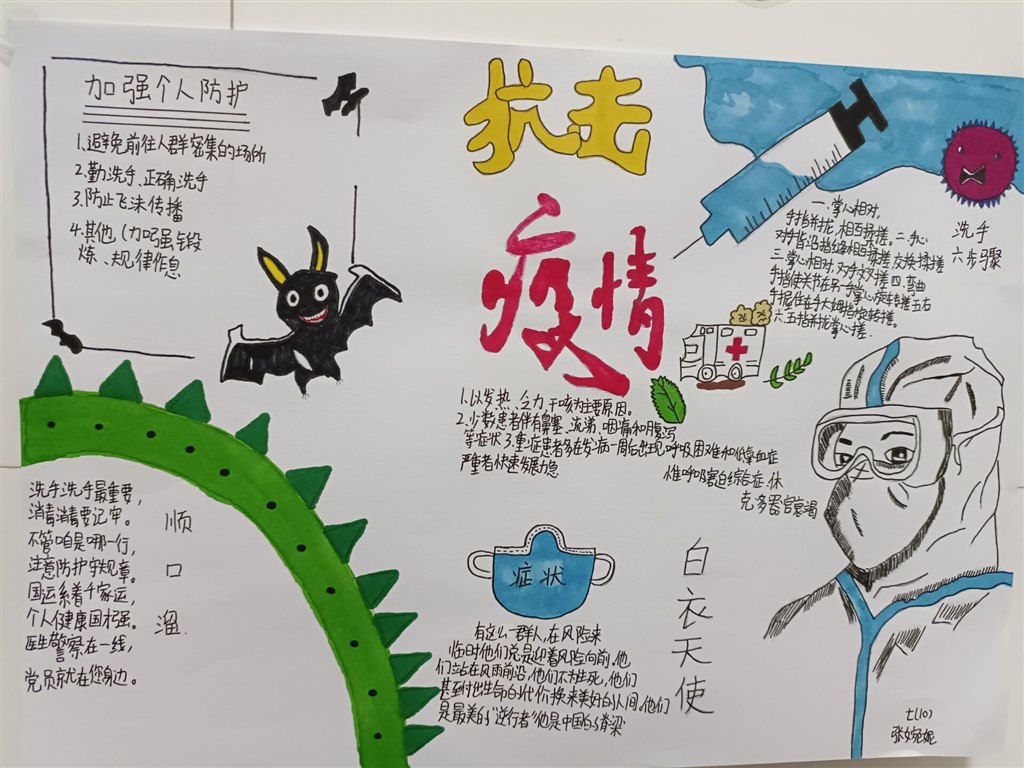 加强个人防护
1.避免前往人群密集的场所
2.勤洗手、正确洗手
3.防止飞沫传播
4.其他(加强锻
炼、规律作息
抗击
疫情
洗手
六步骤
一.掌心相对,
手指并拢,相互揉搓。二.手心
对手背沿指缝相互揉搓,交换揉搓
三.掌心相对,双手交叉搓四.弯曲
手指使关节在另一掌心旋转搓五右
手握住左手大姆指旋转搓。
六.五指并拢掌心搓.
1.以发热、乏力,干咳为主要原因。
2.少数患者伴有鼻塞、流涕、咽痛和腹泻
等症状3.重症患者多在发病一周后出现呼吸困难和低氧血症
严重者快速发展为急
性呼吸窘迫综合症.休
克.多器官衰竭
症状
洗手洗手最重要,
消毒消毒要记牢。
不管咱是哪一行,
注意防护守规章。
国运系着千家运,
个人健康国才强。
医生警察在一线,
党员就在您身边。
顺
口
溜.
有这么一群人,在风险来
临时他们总是迎着风险向前.他
们站在风雨前沿,他们不为生死,他们
甚至付出生命的代价换来美好的人间.他们
是最美的“逆行者”他是中国的脊梁
白
衣
天
使
七(10)
张婉妮